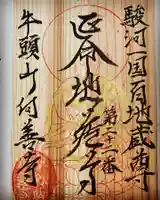 駿河一国百地蔵尊
第二十一番
延命地蔵尊
牛頭山何善寺